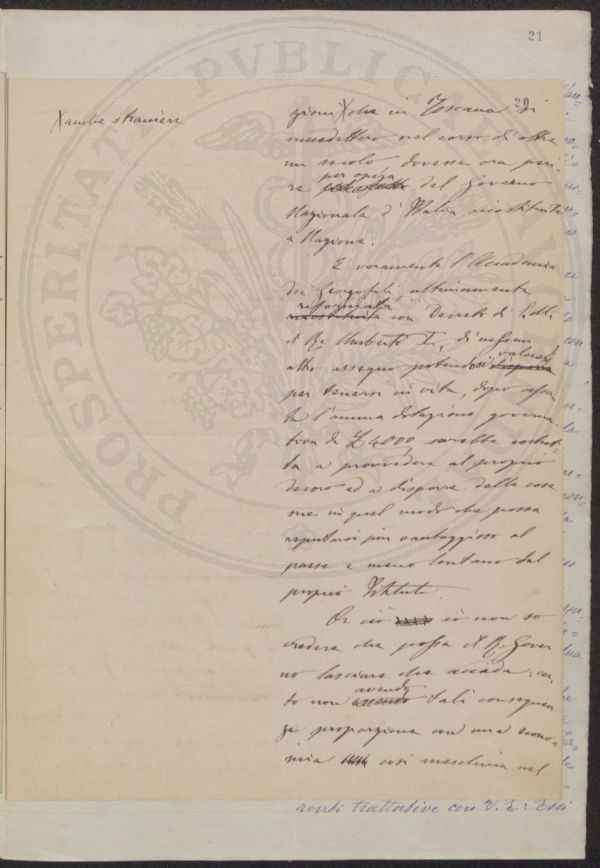 21
20
X anche straniere
zioni X che in Toscana si
succedettero nel corso di oltre
un secolo dovesse ora peri-
re per opera del Governo
Nazionale d'Italia ricostituita
a Nazione.
E veramente l'Accademia
dei Georgofili, ultimamente
riformata con Decreti di S. M.
il Re Umberto I, di nessun
altro assegno potendosi valere
per tenersi in vita, dopo
l'annua dotazione governa-
tiva di £ 4000, sarebbe costret-
ta a provvedere al proprio
decoro ed a disporre delle cose
sue in quel modo che possa
reputarsi più vantaggioso al
paese e meno lontano dal
proprio Istituto.
Or ciò io non so
credere che possa il R. Gover
no lasciare che accada: 
non avendo tali conseguen
ze proporzione con una econo-
mia così meschina nel
renti trattative con V. E.:
PROSPERITATI PVBLICAE